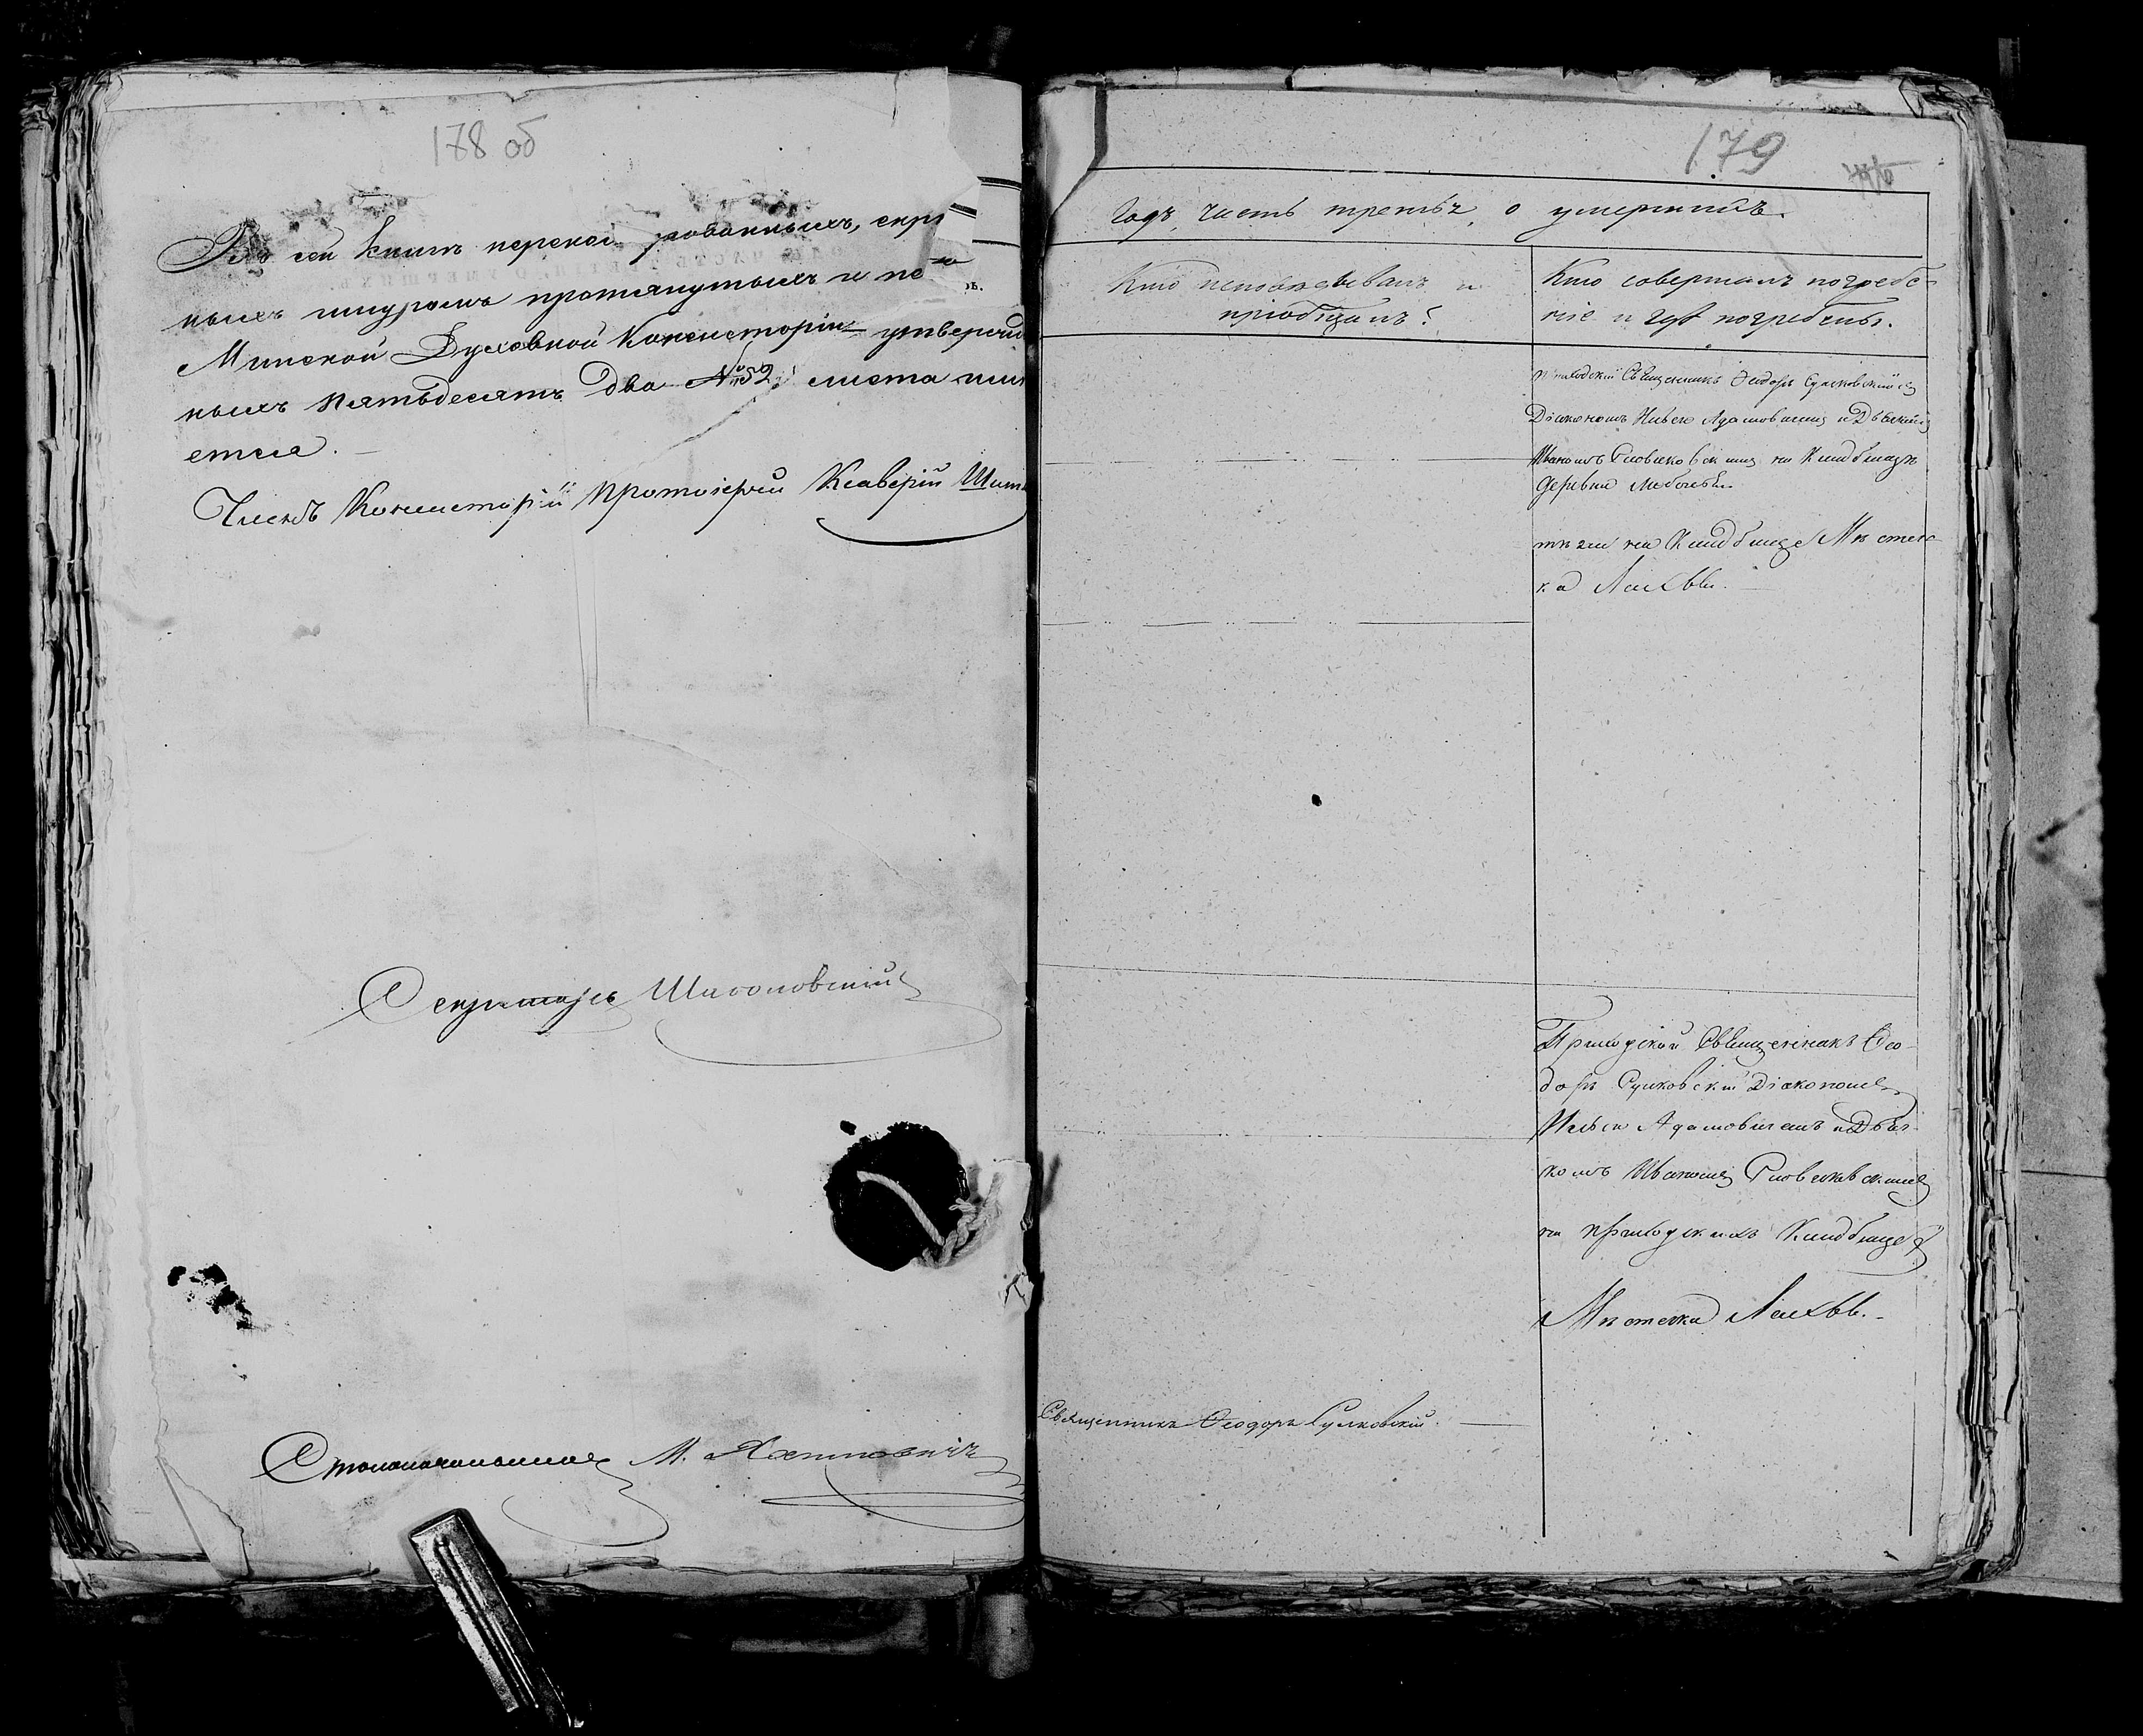 178 об
Въ сей книгѣ перено рованныхъ, скрѣ
ныхъ шнуромъ протянутыхъ и пе
Минской Духовной Консисторіи утвержде
ныхъ пятьдесятъ два № 52 листа
ется.
Членъ Консисторіи Протоіерей Ксаверій
Секретарь
Столоначальникъ М.
179
годъ, часть третья, о умершихъ.
Кто исповѣдывалъ и
пріобщалъ?
Кто совершалъ погребе-
ніе и гдѣ погребены.
Приходскій Священникъ Феодоръ Сулковскій съ
Діакономъ Ильею Адамовичемъ и Дьячкомъ
Иваномъ на Кладбищѣ
деревни
на Кладбище Мѣстеч
ка Лахвы.
Приходской Священникъ Ѳео-
доръ Сулковскій Діакономъ
Ильею Адамовичемъ и Дьяч-
комъ Иваномъ
на приходскихъ Кладбище
Мѣстечка Лахвы.
Священникъ Ѳеодоръ Сулковскій.